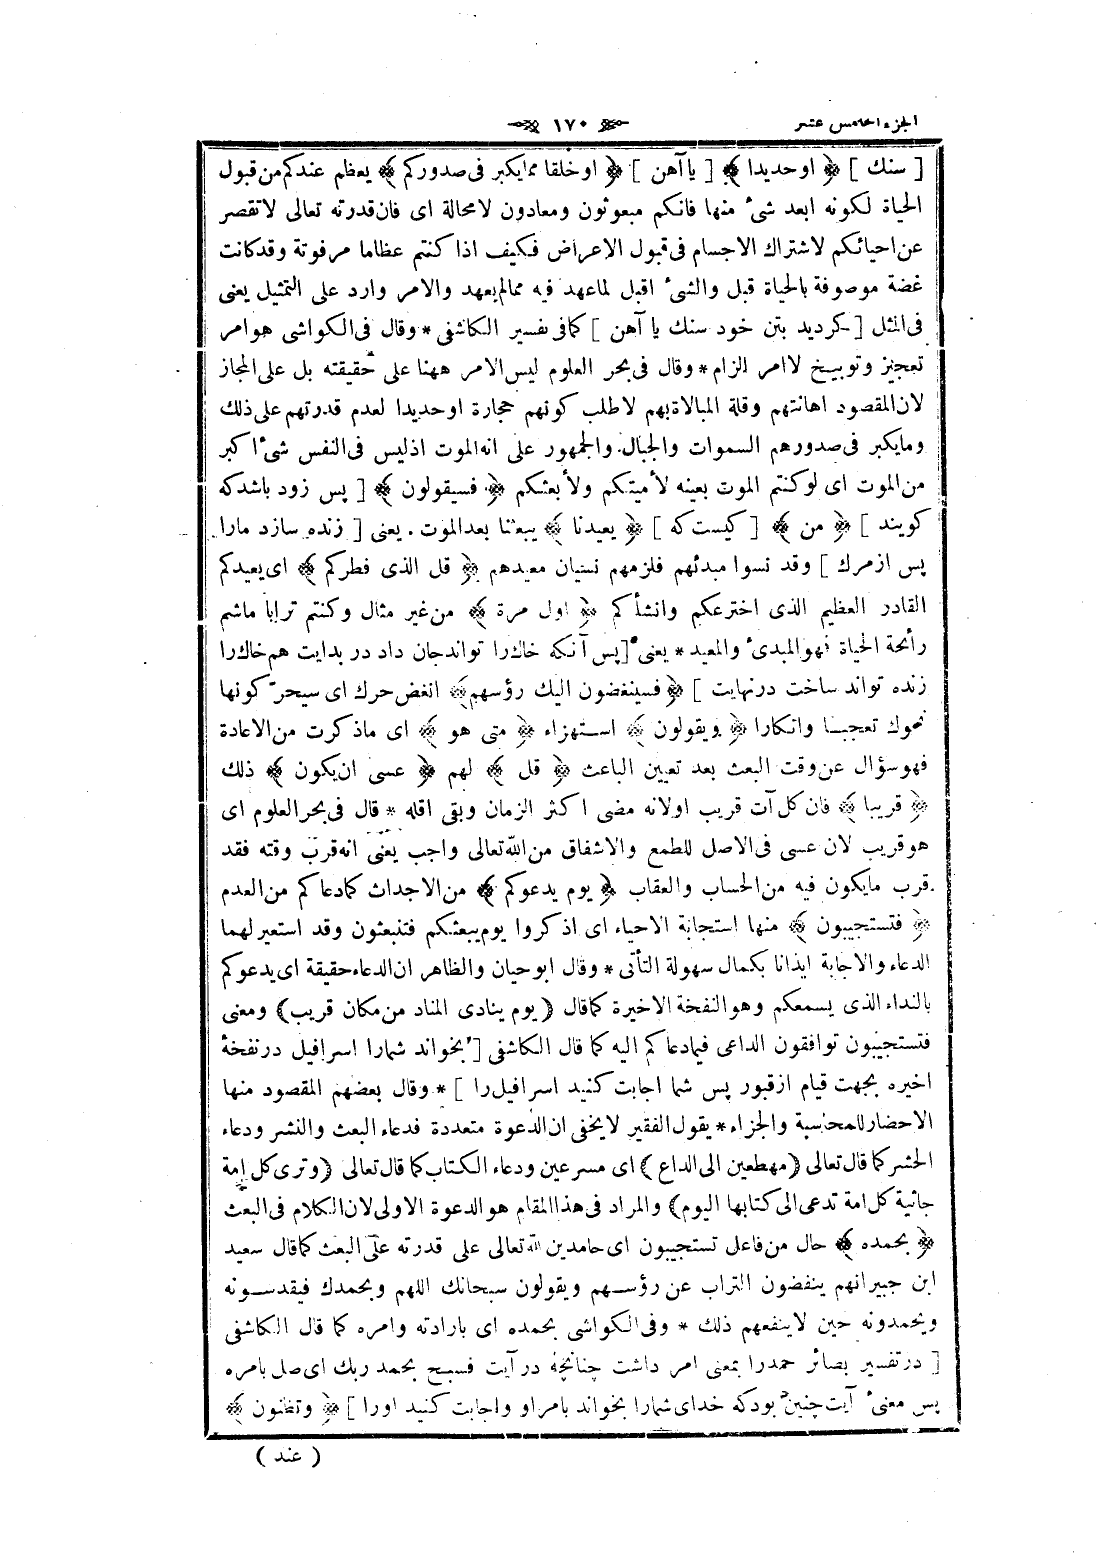 الجزء الخامس عشر ١٧٠
[ سنك ] ﴿ او حديدا ﴾ [ يا آهن ] ﴿ او خلقا مما يكبر فى صدوركم ﴾ يعظم عندكم من قبول
الحياة لكونه ابعد شىء منها فانكم مبعوثون ومعادون لا محالة اى فان قدرته تعالى لا تقصر
عن احيائكم لاشتراك الاجسام فى قبول الاعراض فكيف اذا كنتم عظاما مرفوتة وقد كانت
غضة موصوفة بالحياة قبل والشىء اقبل لما عهد فيه مما لم يعهد والامر وارد على التمثيل يعنى
فى المثل [ كرديد بتن خود سنك يا آهن ] كما فى تفسير الكاشفى * وقال فى الكواشى هو امر
تعجيز وتوبيخ لا امر الزام * وقال فى بحر العلوم ليس الامر ههنا على حقيقته بل على المجاز
لان المقصود اهانتهم وقلة المبالاة بهم لا طلب كونهم حجارة او حديدا لعدم قدرتهم على ذلك
وما يكبر فى صدورهم السموات والجبال. والجمهور على انه الموت اذ ليس فى النفس شىء اكبر
من الموت اى لو كنتم الموت بعينه لأميتكم ولأبعثكم ﴿ فسيقولون ﴾ [ پس زود باشد كه
كويند ] ﴿ من ﴾ [ كيست كه ] ﴿ يعيدنا ﴾ يبعثنا بعد الموت . يعنى [ زنده سازد مارا
پس از مرك ] وقد نسوا مبدئهم فلزمهم نسيان معيدهم ﴿ قل الذى فطركم ﴾ اى يعيدكم
القادر العظيم الذى اخترعكم وانشأكم ﴿ اول مرة ﴾ من غير مثال وكنتم ترابا ماشم
رأيحة الحياة فهو المبدئ والمعيد * يعنى [ پس آنكه خاك را تواند جان داد در بدايت هم خاك را
زنده تواند ساخت در نهايت ] ﴿ فسينغضون اليك رؤسهم ﴾ انغض حرك اى سيحركونها
نحوك تعجبا وانكارا ﴿ ويقولون ﴾ استهزاء ﴿ متى هو ﴾ اى ماذكرت من الاعادة
فهو سؤال عن وقت البعث بعد تعيين الباعث ﴿ قل ﴾ لهم ﴿ عسى ان يكون ﴾ ذلك
﴿ قريبا ﴾ فان كل آت قريب او لانه مضى اكثر الزمان وبقى اقله * قال فى بحر العلوم اى
هو قريب لان عسى فى الاصل للطمع والاشفاق من الله تعالى واجب يعنى انه قرب وقته فقد
قرب ما يكون فيه من الحساب والعقاب ﴿ يوم يدعوكم ﴾ من الاجداث كما دعاكم من العدم
﴿ فتستجيبون ﴾ منها استجابة الاحياء اى اذكروا يوم يبعثكم فتنبعثون وقد استعير لهما
الدعاء والاجابة ايذانا بكمال سهولة التأتى * وقال ابو حيان والظاهر ان الدعاء حقيقة اى يدعوكم
بالنداء الذى يسمعكم وهو النفخة الاخيرة كما قال ( يوم يناد المناد من مكان قريب ) ومعنى
فتستجيبون توافقون الداعى فيما دعاكم اليه كما قال الكاشفى [ بخواند شمارا اسرافيل در نفخهٔ
اخيره بجهت قيام از قبور پس شما اجابت كنيد اسرافيل را ] * وقال بعضهم المقصود منها
الاحضار للمحاسبة والجزاء * يقول الفقير لا يخفى ان الدعوة متعددة فدعاء البعث والنشر ودعاء
الحشر كما قال تعالى ( مهطعين الى الداع ) اى مسرعين ودعاء الكتاب كما قال تعالى ( وترى كل امة
جاثية كل امة تدعى الى كتابها اليوم ) والمراد فى هذا المقام هو الدعوة الاولى لان الكلام فى البعث
﴿ بحمده ﴾ حال من فاعل تستجيبون اى حامدين لله تعالى على قدرته على البعث كما قال سعيد
ابن جبير انهم ينفضون التراب عن رؤسهم ويقولون سبحانك اللهم وبحمدك فيقدسونه
ويحمدونه حين لا ينفعهم ذلك * وفى الكواشى بحمده اى بارادته وامره كما قال الكاشفى
[ در تفسير بصائر حمد را بمعنى امر داشت چنانچه در آيت فسبح بحمد ربك اى صل بامره
پس معنىء آيت چنين بود كه خداى شمارا بخواند بامر او واجابت كنيد اورا ] ﴿ وتظنون ﴾
( عند )